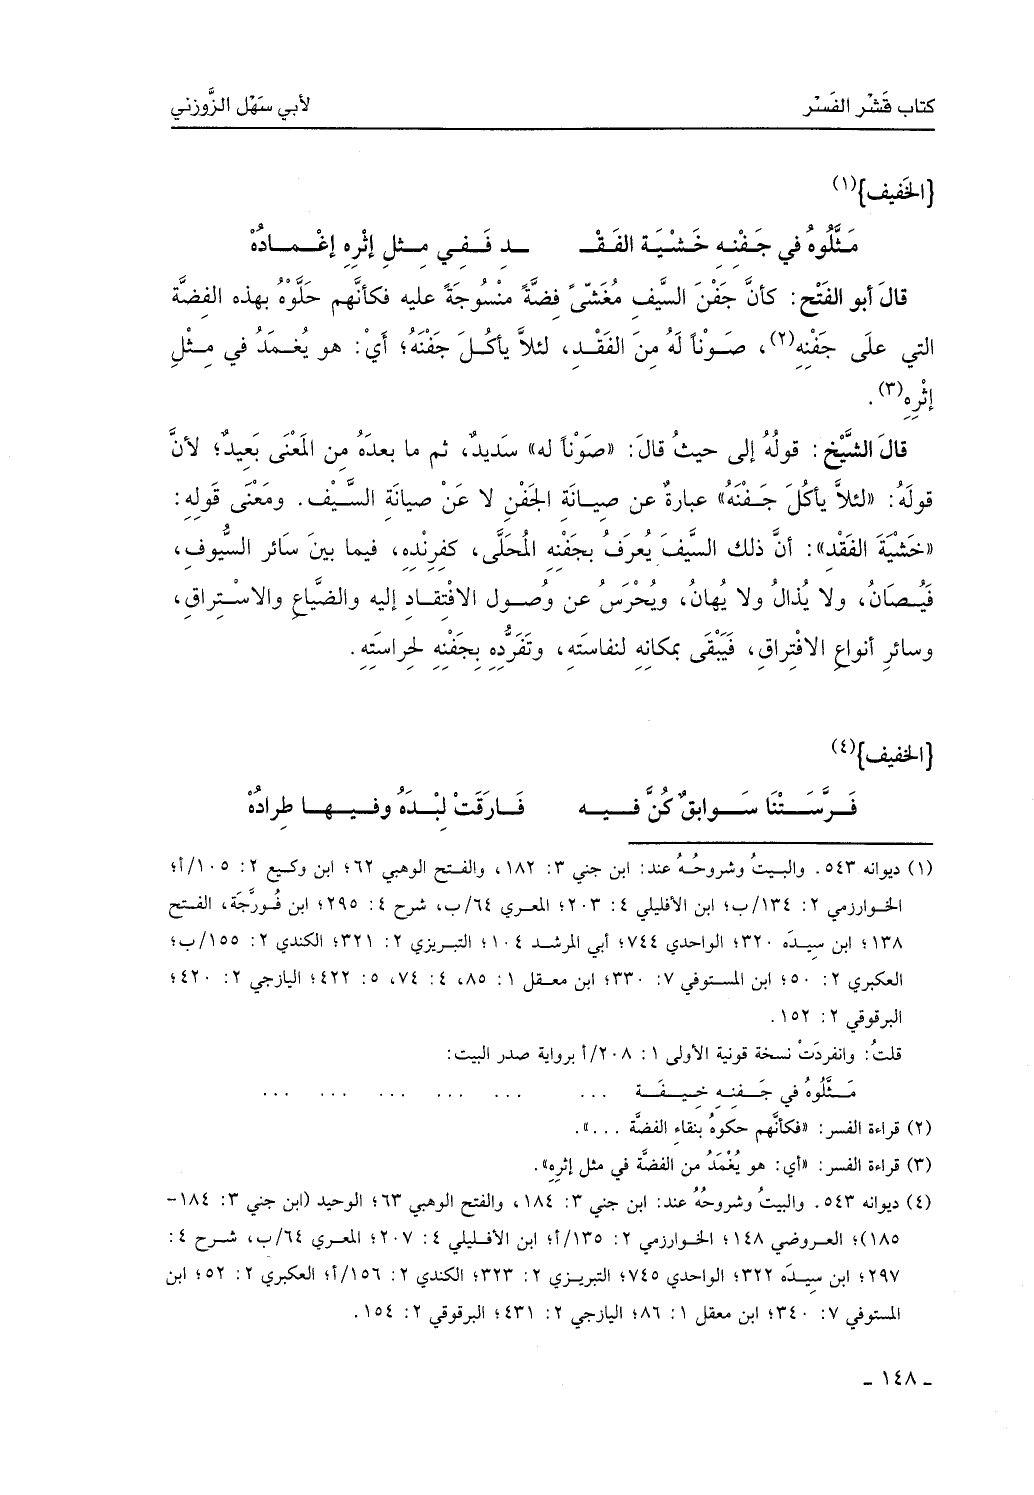 كتاب قَشْر الفَسْر لأبي سَهْل الزَّوزني
{الخَفيف}(١)
مَثَّلُوهُ في جَفْنِهِ خَشْيَةَ الفَقْـ ـدِ فَفي مِثْلِ إثْرِهِ إغْمادُهْ
قالَ أبو الفَتْح: كأنَّ جَفْنَ السَّيفِ مُغَشّىً فِضَّةً مَنْسُوجَةً عليه فكأنَّهم حَلَّوْهُ بهذه الفِضَّة
التي علَى جَفْنِهِ(٢)، صَوْناً لَهُ مِنَ الفَقْدِ، لئلاَّ يأكُلَ جَفْنَهُ؛ أيْ: هو يُغمَدُ في مِثْلِ
إثْرِهِ(٣).
قالَ الشَّيْخ: قولُهُ إلى حيثُ قالَ: «صَوْناً له» سَديدٌ، ثم ما بعدَهُ مِن المَعْنَى بَعيدٌ؛ لأنَّ
قولَهُ: «لئلاَّ يأكُلَ جَفْنَهُ» عبارةٌ عن صِيانَةِ الجَفْنِ لا عَنْ صِيانَةِ السَّيْف. ومَعْنَى قَولِهِ:
«خَشْيَةَ الفَقْدِ»: أنَّ ذلك السَّيفَ يُعرَفُ بجَفْنِهِ المُحَلَّى، كفِرِنْدِهِ، فيما بينَ سَائرِ السُّيوف،
فَيُصَانُ، ولا يُذالُ ولا يُهانُ، ويُحْرَسُ عن وُصولِ الافْتِقادِ إليه والضَّياعِ والاسْتِراقِ،
وسائرِ أنواعِ الافْتِراقِ، فَيَبْقَى بمكانِهِ لنفاسَتِهِ، وتَفَرُّدِهِ بِجَفْنِهِ لحِراسَتِهِ.
{الخفيف}(٤)
فَرَّسَتْنَا سَوابقٌ كُنَّ فيه فَارَقَتْ لِبْدَهُ وفيها طِرادُهْ
(١) ديوانه ٥٤٣. والبيتُ وشروحُهُ عند: ابن جني ٣: ١٨٢، والفتح الوهبي ٦٢؛ ابن وكيع ٢: ١٠٥/أ؛
الخوارزمي ٢: ١٣٤/ب؛ ابن الأفليلي ٤: ٢٠٣؛ المعري ٦٤/ب، شرح ٤: ٢٩٥؛ ابن فُورَّجَة، الفتح
١٣٨؛ ابن سِيدَه ٣٢٠؛ الواحدي ٧٤٤؛ أبي المرشد ١٠٤؛ التبريزي ٢: ٣٢١؛ الكندي ٢: ١٥٥/ب؛
العكبري ٢: ٥٠؛ ابن المستوفي ٧: ٣٣٠؛ ابن معقل ١: ٨٥، ٤: ٧٤، ٥: ٤٢٢؛ اليازجي ٢: ٤٢٠؛
البرقوقي ٢: ١٥٢.
قلتُ: وانفردَتْ نسخة قونية الأولى ١: ٢٠٨/أ برواية صدر البيت:
مَثَّلُوهُ في جَفنِهِ خِيفَةَ ... ... ... ... ... ...
(٢) قراءة الفسر: «فكأنَّهم حكوهُ بنقاء الفضَّة ...».
(٣) قراءة الفسر: «أي: هو يُغْمَدُ من الفضَّة في مثل إثرِهِ».
(٤) ديوانه ٥٤٣. والبيتُ وشروحُهُ عند: ابن جني ٣: ١٨٤، والفتح الوهبي ٦٣؛ الوحيد (ابن جني ٣: ١٨٤-
١٨٥)؛ العروضي ١٤٨؛ الخوارزمي ٢: ١٣٥/أ؛ ابن الأفليلي ٤: ٢٠٧؛ المعري ٦٤/ب، شرح ٤:
٢٩٧؛ ابن سِيدَه ٣٢٢؛ الواحدي ٧٤٥؛ التبريزي ٢: ٣٢٣؛ الكندي ٢: ١٥٦/أ؛ العكبري ٢: ٥٢؛ ابن
المستوفي ٧: ٣٤٠؛ ابن معقل ١: ٨٦؛ اليازجي ٢: ٤٣١؛ البرقوقي ٢: ١٥٤.
ـ ١٤٨ ـ